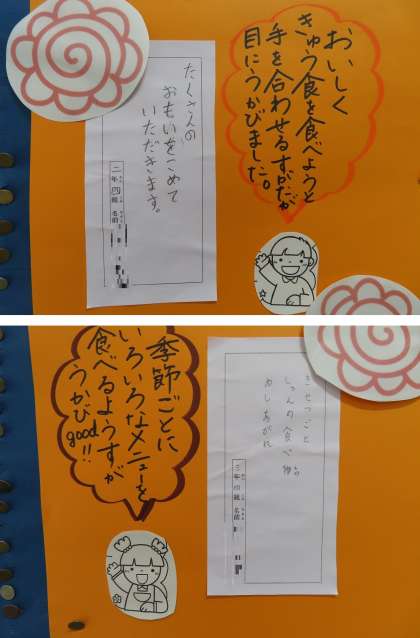 おいしく
きゅう食を食べようと
手を合わせるすがたが
目にうかびました。
たくさんの
おもいをこめて
いただきます。
二年四組 名前
季節ごとに
いろいろなメニューを
食べるようすが
うかびgood!!
きせつごと
しゅんの食べ物
めしあがれ